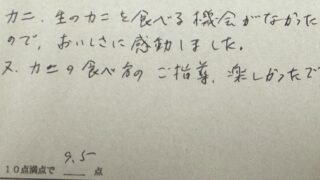 カニ、生のカニを食べる機会がなかった
ので、おいしさに感動しました。
又、カニの食べ方のご指導、楽しかったで
9.5
10点満点で 点